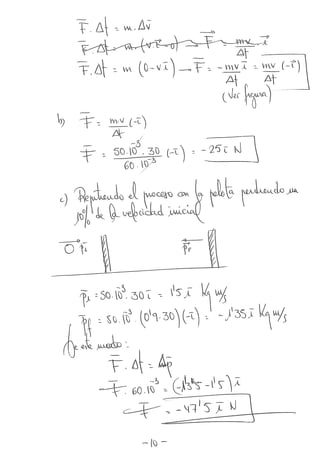 F̅.Δt = m.Δv̅
F̅.Δt = m.(v i̅ - 0) → F̅ = mv/Δt i̅
F̅.Δt = m (0-v i̅) → F̅ = - mv i̅/Δt = mv/Δt (-i̅)
(Ver figura)
b) F̅ = m.v/Δt (-i̅)
F̅ = 50.10⁻³.30/60.10⁻³ (-i̅) = -25 i̅ N
c) Repitiendo el proceso con la pelota perdiendo un
10% de la velocidad inicial
p̅i p̅f
p̅i = 50.10⁻³.30 i̅ = 1'5 i̅ Kg m/s
p̅f = 50.10⁻³.(0'9.30)(-i̅) = -1'35 i̅ Kg m/s
De este modo:
F̅.Δt = Δp̅
F̅.60.10⁻³ = (-1'35-1'5) i̅
F̅ = -47'5 i̅ N
-10-